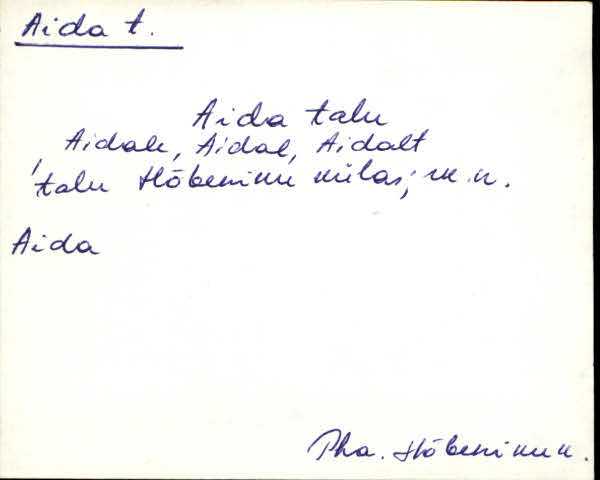 Aida t.
Aida talu
, Aidale, Aidal, Aidalt
talu Hõbeniku külas; m.n.
Aida
Pha. Hõbeniku k.